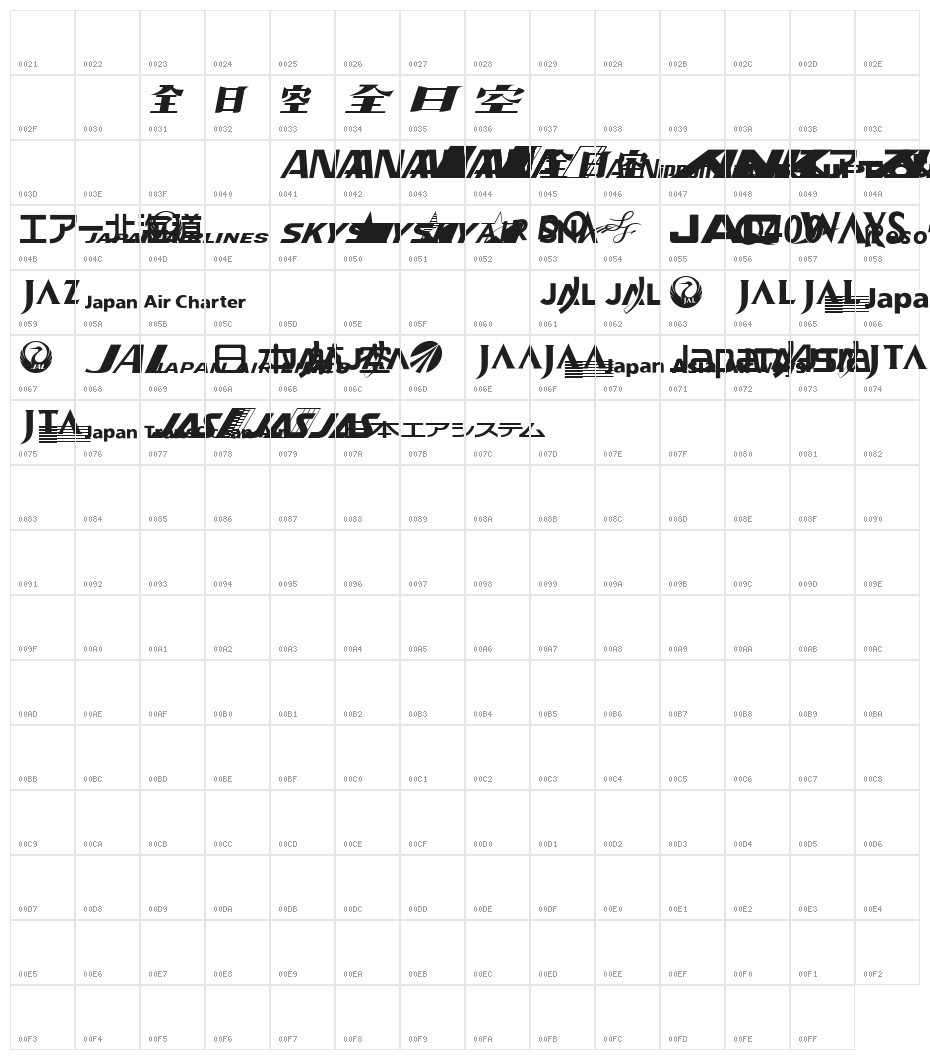 0021 0022 0023 0024 0025 0026 0027 0028 0029 002A 002B 002C 002D 002E
全 日 空 全 日 空
002F 0030 0031 0032 0033 0034 0035 0036 0037 0038 0039 003A 003B 003C
ANA
003D 003E 003F 0040 0041 0042 0043 0044 0045 0046 0047 0048 0049 004A
エアー北海道 JAPAN AIRLINES SKY SKY SKY SNA JAC WAYS
004B 004C 004D 004E 004F 0050 0051 0052 0053 0054 0055 0056 0057 0058
JAZ Japan Air Charter JAL JAL JAL JAL JAL Japa
0059 005A 005B 005C 005D 005E 005F 0060 0061 0062 0063 0064 0065 0066
JAL JAL JAPAN AIRLINES JAA JAA Japan Asia Airways JTA
0067 0068 0069 006A 006B 006C 006D 006E 006F 0070 0071 0072 0073 0074
JTA Japan TransOcean Air JAS JAS JAS 日本エアシステム
0075 0076 0077 0078 0079 007A 007B 007C 007D 007E 007F 0080 0081 0082
0083 0084 0085 0086 0087 0088 0089 008A 008B 008C 008D 008E 008F 0090
0091 0092 0093 0094 0095 0096 0097 0098 0099 009A 009B 009C 009D 009E
009F 00A0 00A1 00A2 00A3 00A4 00A5 00A6 00A7 00A8 00A9 00AA 00AB 00AC
00AD 00AE 00AF 00B0 00B1 00B2 00B3 00B4 00B5 00B6 00B7 00B8 00B9 00BA
00BB 00BC 00BD 00BE 00BF 00C0 00C1 00C2 00C3 00C4 00C5 00C6 00C7 00C8
00C9 00CA 00CB 00CC 00CD 00CE 00CF 00D0 00D1 00D2 00D3 00D4 00D5 00D6
00D7 00D8 00D9 00DA 00DB 00DC 00DD 00DE 00DF 00E0 00E1 00E2 00E3 00E4
00E5 00E6 00E7 00E8 00E9 00EA 00EB 00EC 00ED 00EE 00EF 00F0 00F1 00F2
00F3 00F4 00F5 00F6 00F7 00F8 00F9 00FA 00FB 00FC 00FD 00FE 00FF